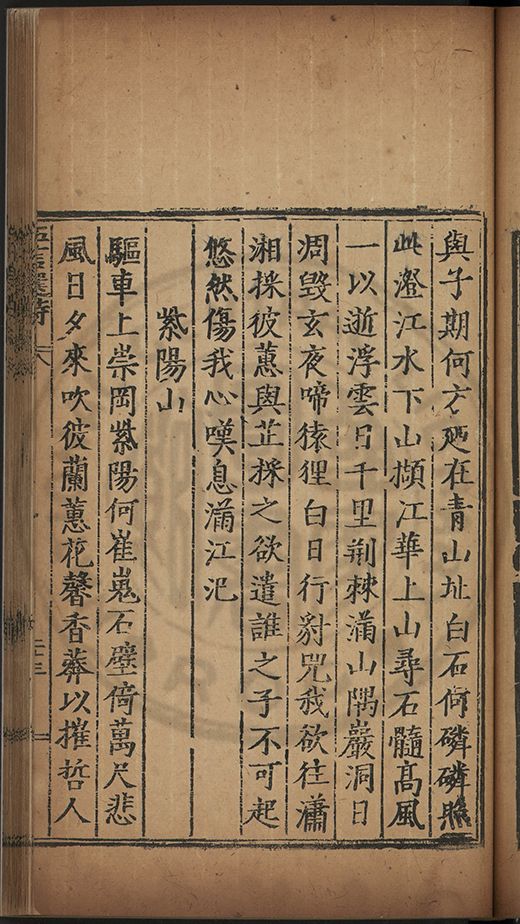 與子期何方廼在青山址白石何磷磷照
此澄江水下山擷江華上山尋石髓高風
一以逝浮雲日千里荆棘滿山隅巖洞日
凋毀玄夜啼猿狸白日行豺兕我欲往瀟
湘採彼蕙與芷採之欲遣誰之子不可起
悠然傷我心嘆息滿江汜
紫陽山
驅車上崇岡紫陽何崔嵬石壁倚萬尺悲
風日夕來吹彼蘭蕙花馨香莽以摧哲人